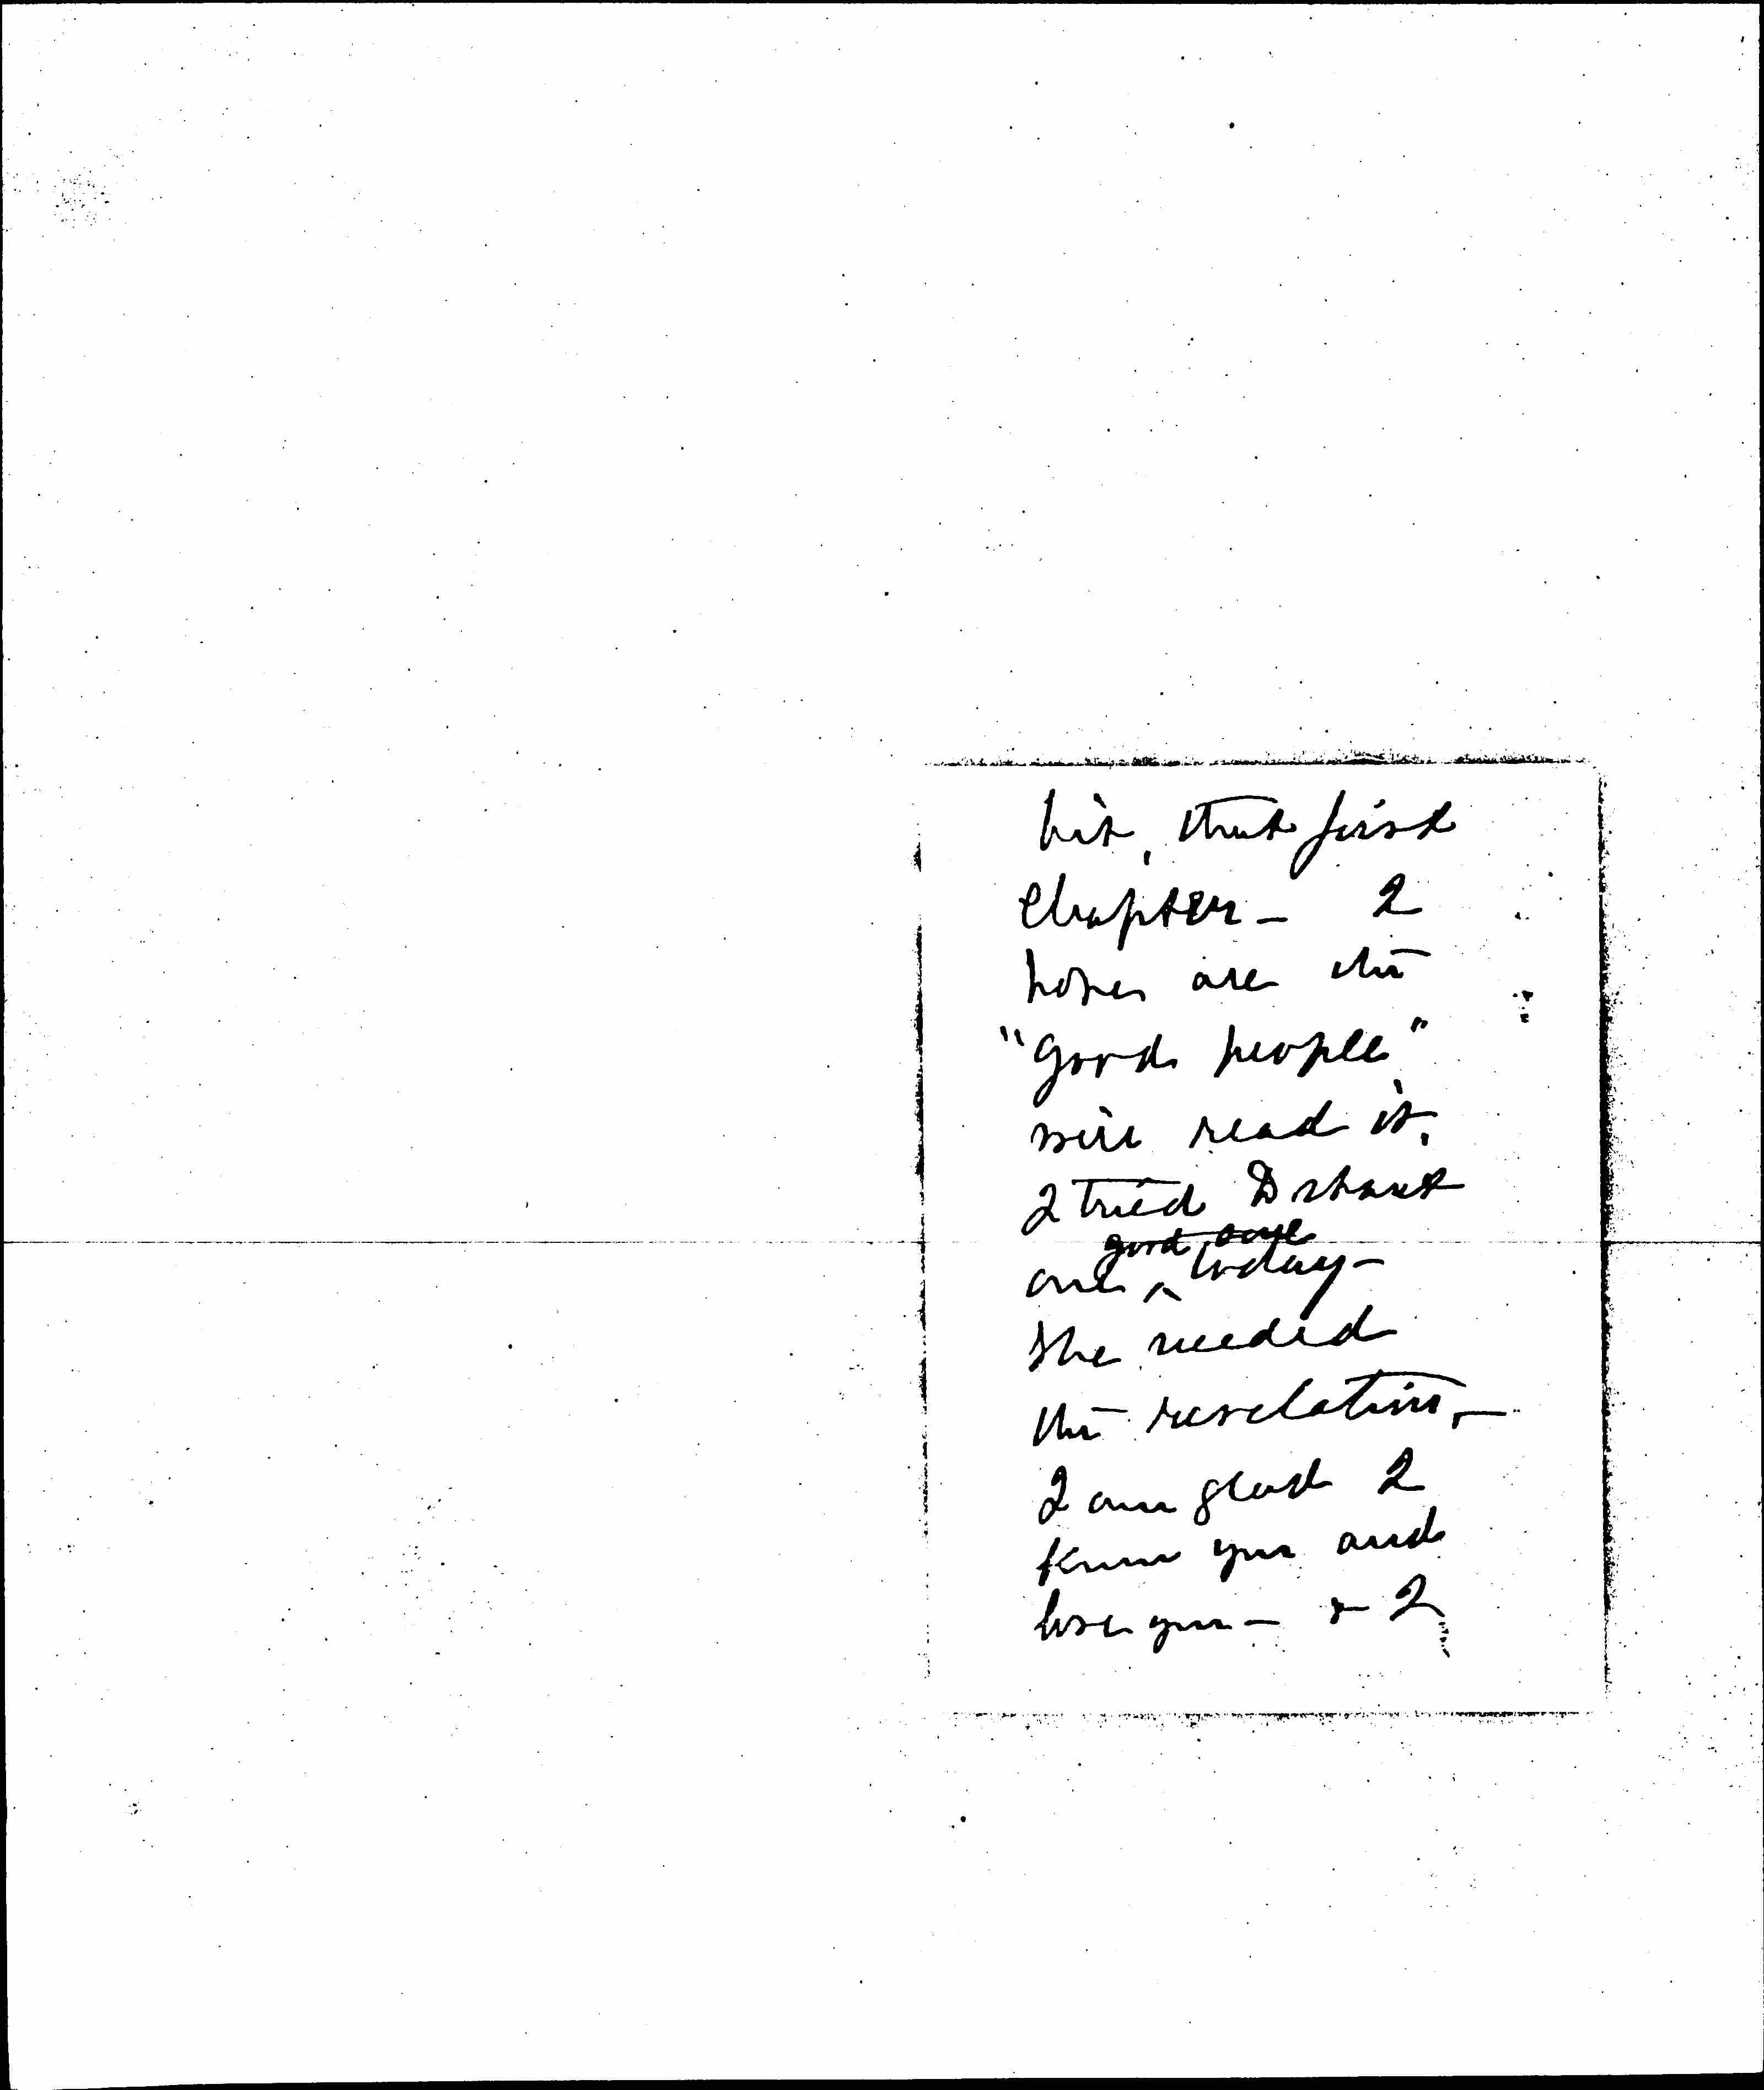 bit, that first
chapter – I
hope all the
"good people"
will read it.
I tried to start
good soul
one ^ today –
She needed
the revelation, –
I am glad I
know you and
love you – & I